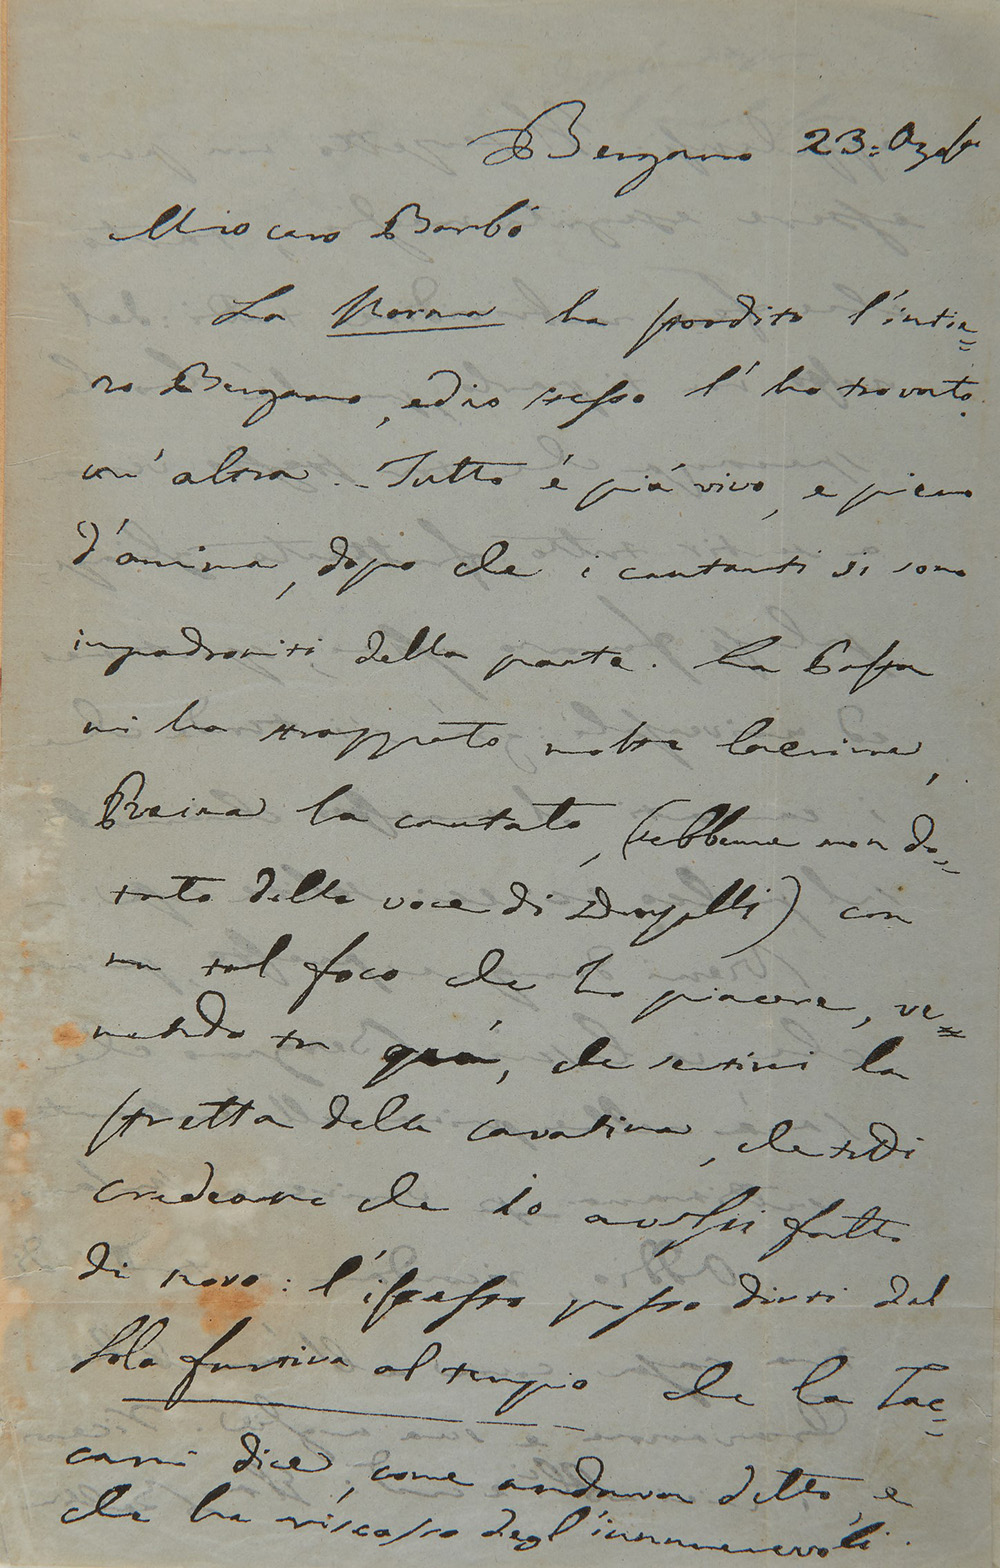 Bergamo 23: Agosto
Mio caro Barbò
La Norma ha stordito l'intie=
ro Bergamo, ed io stesso l'ho trovata
un'altra. Tutto é piú vivo, e pieno
d'anima, dopo che i cantanti si sono
impadroniti della parte. La Pasta
mi ha strappato molte lacrime,
Reina la cantato, (sebbene non do=
tato della voce di Donzelli) con
un tal foco che ho piacere, ve=
nendo tu quá, che senti la
stretta della cavatina, che tutti
credeano che io avessi fatto
di novo: l'istesso posso dirti del
Sola furtiva al tempio che la Tac=
cani dice, come andava detto, e
che ha riscosso degl'innumerevoli